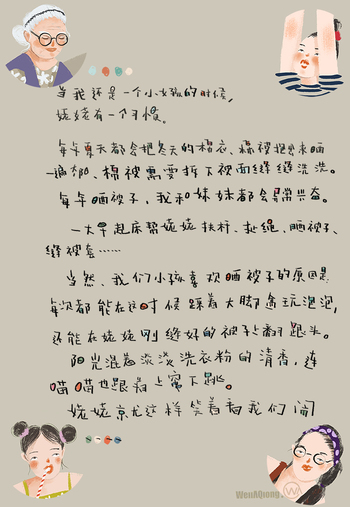 当我还是一个小女孩的时候，
姥姥有一个习惯。
每年夏天都会把冬天的棉衣、棉被抱出来晒
一遍，棉被需要拆下被面缝缝洗洗。
每年晒被子，我和妹妹都会异常兴奋。
一大早起床帮姥姥扶杆、扯绳、晒被子、
缝被套……
当然、我们小孩喜欢晒被子的原因是
每次都能在这时候踩着大脚盆玩泡泡，
还能在姥姥刚缝好的被子上翻跟头。
阳光混着淡淡洗衣粉的清香，连
喵喵也跟着上窜下跳。
姥姥就这样笑着看我们闹
WenAQiong